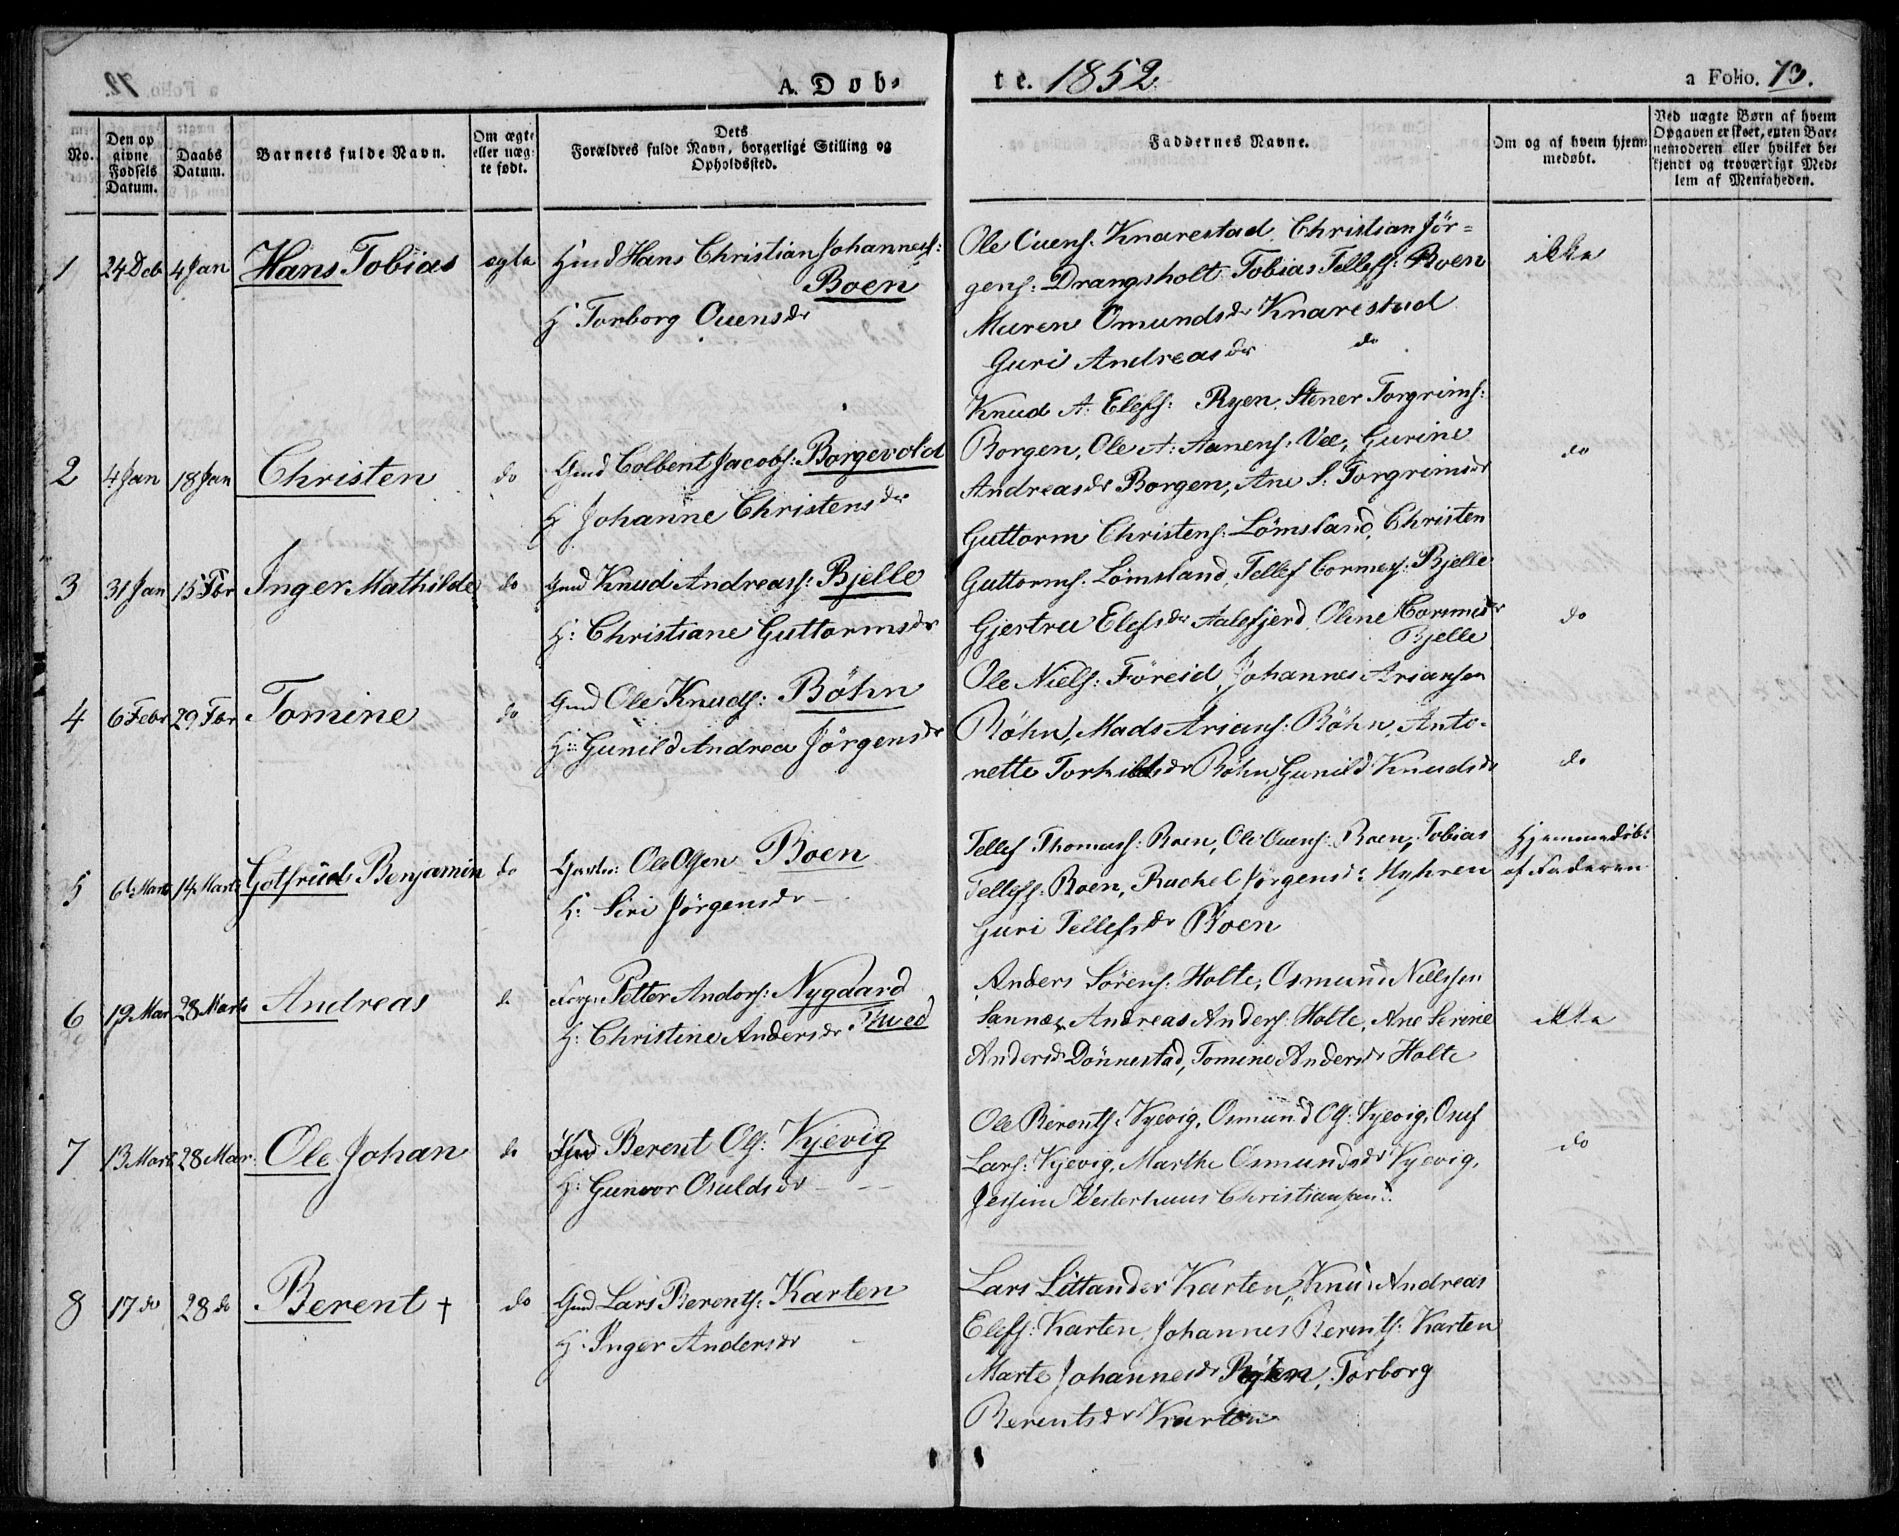 A. Døb-
te. 1852.
a Folio. 73.
No.
Den op
givne
Fødsels
Datum.
Daabs
Datum.
Barnets fulde Navn.
Om ægte
eller uæg-
te født.
Dets
Forældres fulde Navn, borgerlige Stilling og
Opholdssted.
Faddernes Navne.
Om og af hvem hjem-
medøbt.
Ved uægte Børn af hvem
Opgaven er skeet, enten Bar-
nemoderen eller hvilket be-
kjendt og troværdigt Med-
lem af Menigheden.
1 24 Deb 4 Jan Hans Tobias ægte Hans Christian Johannes:
Boen
H: Torborg Ouensdr
Ole Ouens: Knarestad, Christian Jør=
gens: Drangsholt, Tobias Tellefs: Boen
Maren Omundsdr Knarestad
Guri Andreasdr do
ikke
2 4 Jan 18 Jan Christen do Gmd Colbent Jacobs: Borgevold
H Johanne Christensdr
Knud A: Elefs: Ryen, Stener Torgrims:
Borgen, Ole A: Aanens: Vee, Gurine
Andreasdr Borgen, Ane S: Torgrimsdr
do
3 31 Jan 15 Febr Inger Mathilde do Gmd Knud Andreass: Bjelle
H: Christiane Guttormsdr
Guttorm Christens: Lömsland, Christen
Guttorms: Lömsland, Tellef Cormes: Bjelle
Gjertru Elefsdr Aalefjerd, Oline Cormesdr
Bjelle
do
4 6 Febr 29 Febr Tomine do Gmd Ole Knuds: Böhn
H: Gunild Andrea Jörgensdr
Ole Niels: Föreid, Johannes Ariansen
Böhn, Mads Arians: Böhn, Anto-
nette Torkildsdr Böhn, Gunild Knudsdr
do
5 6t Marts 14 Marts Gotfried Benjamin do Ole Olsen Boen
H: Siri Jörgensdr
Tellef Thomass: Boen, Ole Ouens: Boen, Tobias
Tellefs: Boen, Rachel Jörgensdr Myhren
Guri Tellefsdr Boen
Hjemmedöbt
af Faderen
6 19 Mar 28 Marts Andreas do Petter Anders: Nygaard
H: Christine Andersdr Tved
Anders Sörens: Holte, Osmund Nielssen
Sannæs, Andreas Anders: Holte, Ane Serine
Andersdr Dönnestad, Tomine Andersdr Holte
ikke
7 13 Marts 28 Mar Ole Johan do Berent Ols: Vyevig
H: Gunvor Osuldsdr
Ole Berents: Vyevig, Osmund Ols: Vyevig, Osuf
Lars: Vyevig, Marthe Osmundsdr Vyevig,
Vesterhuus Christiansand.
do
8 17 do 28 do Berent † do Gmd Lars Berents: Karten
H: Inger Andersdr
Lars Littander Karten, Knud Andreas
Elefs: Karten, Johannes Berents: Karten
Marte Johannesdr Torborg
Berentsdr Karten